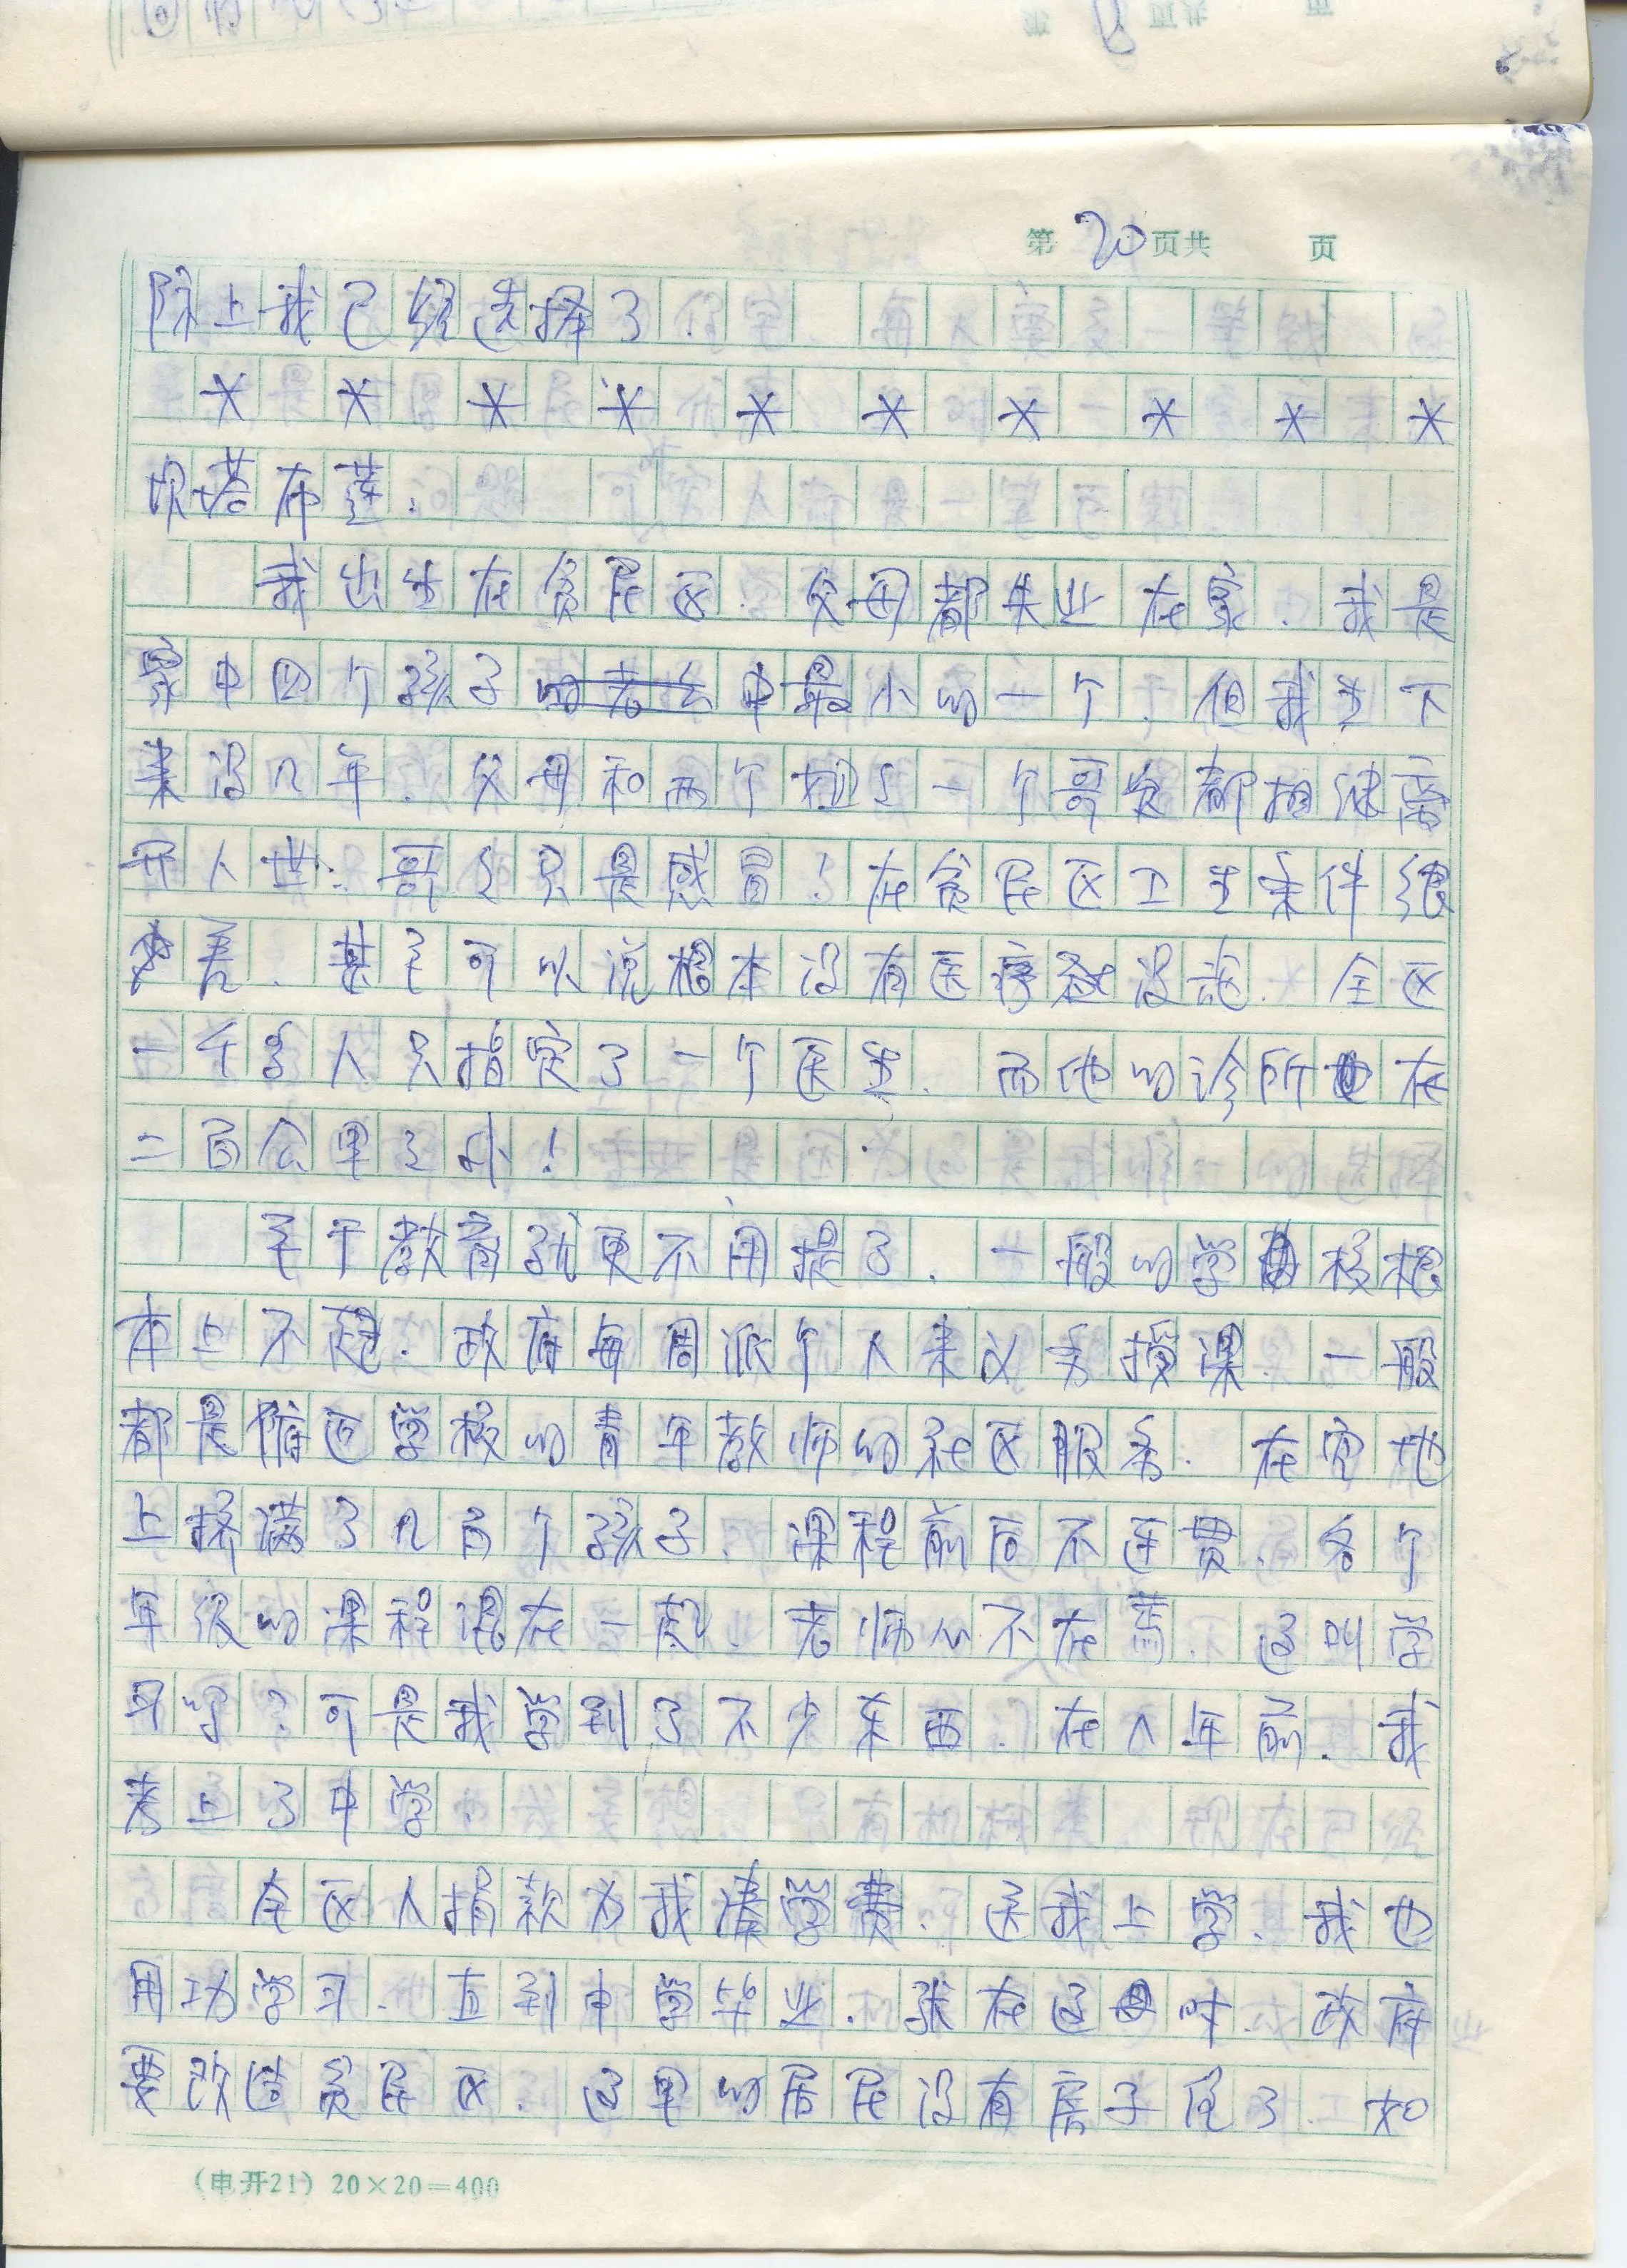 第20页共 页
际上我已经选择了.
* * * * * * * * * *
坎塔布莲:
我出生在贫民区.父母都失业在家.我是
家中四个孩子中最小的一个.但我生下
来没几年.父母和两个姐姐一个哥哥都相继离
开人世.哥哥只是感冒!在贫民区卫生条件很
差.甚至可以说根本没有医疗设施.全区
一千多人只指定了一个医生.而他的诊所在
二百公里之外!
至于教育就更不用提了.一般的学校根
本上不起.政府每周派个人来义务授课.一般
都是附近学校的青年教师的社区服务.在空地
上挤满了几百个孩子.课程前后不连贯.各个
年级的课程混在一起.老师心不在焉.这叫学
习吗?可是我学到了不少东西.在八年前.我
考上了中学.
全区人捐款为我凑学费.送我上学.我也
用功学习.直到中学毕业.就在这时.政府
要改造贫民区.这里的居民没有房子住了.如
(电开21) 20×20=400